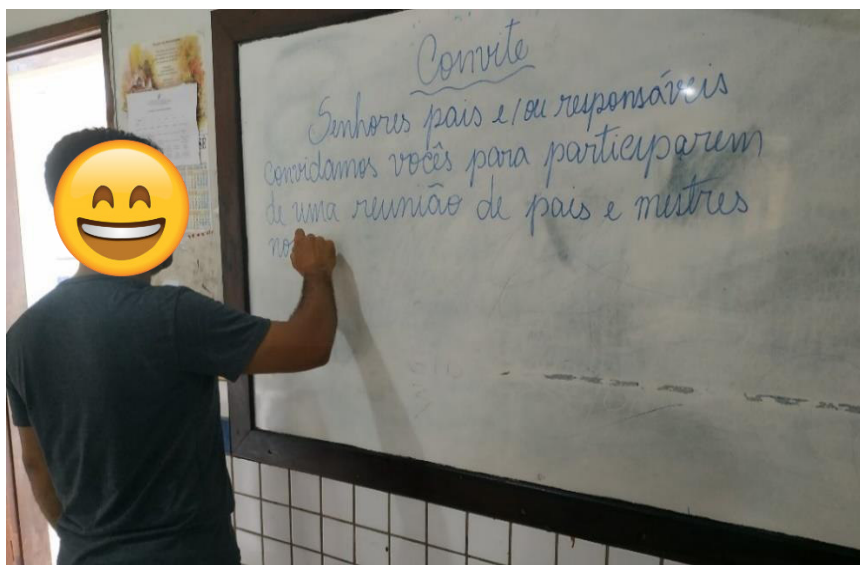 Convite
Senhores pais e/ou responsáveis
convidamos vocês para participarem
de uma reunião de pais e mestres
no